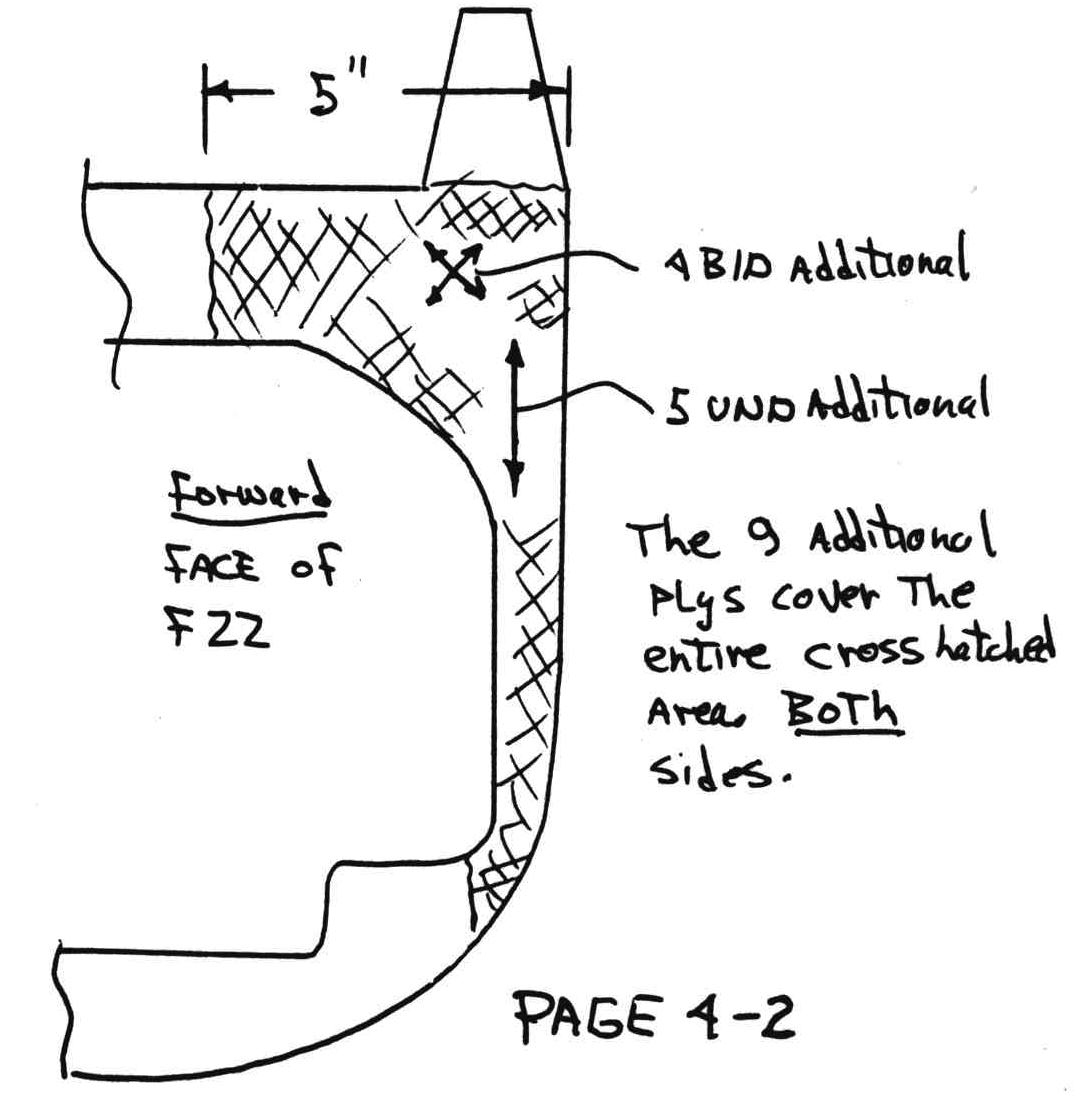 5"
4 BID Additional
5 UND Additional
Forward
FACE of
F22
The 9 Additional
PLys cover The
entire cross hatched
Area. BoTh
sides.
PAGE 4-2